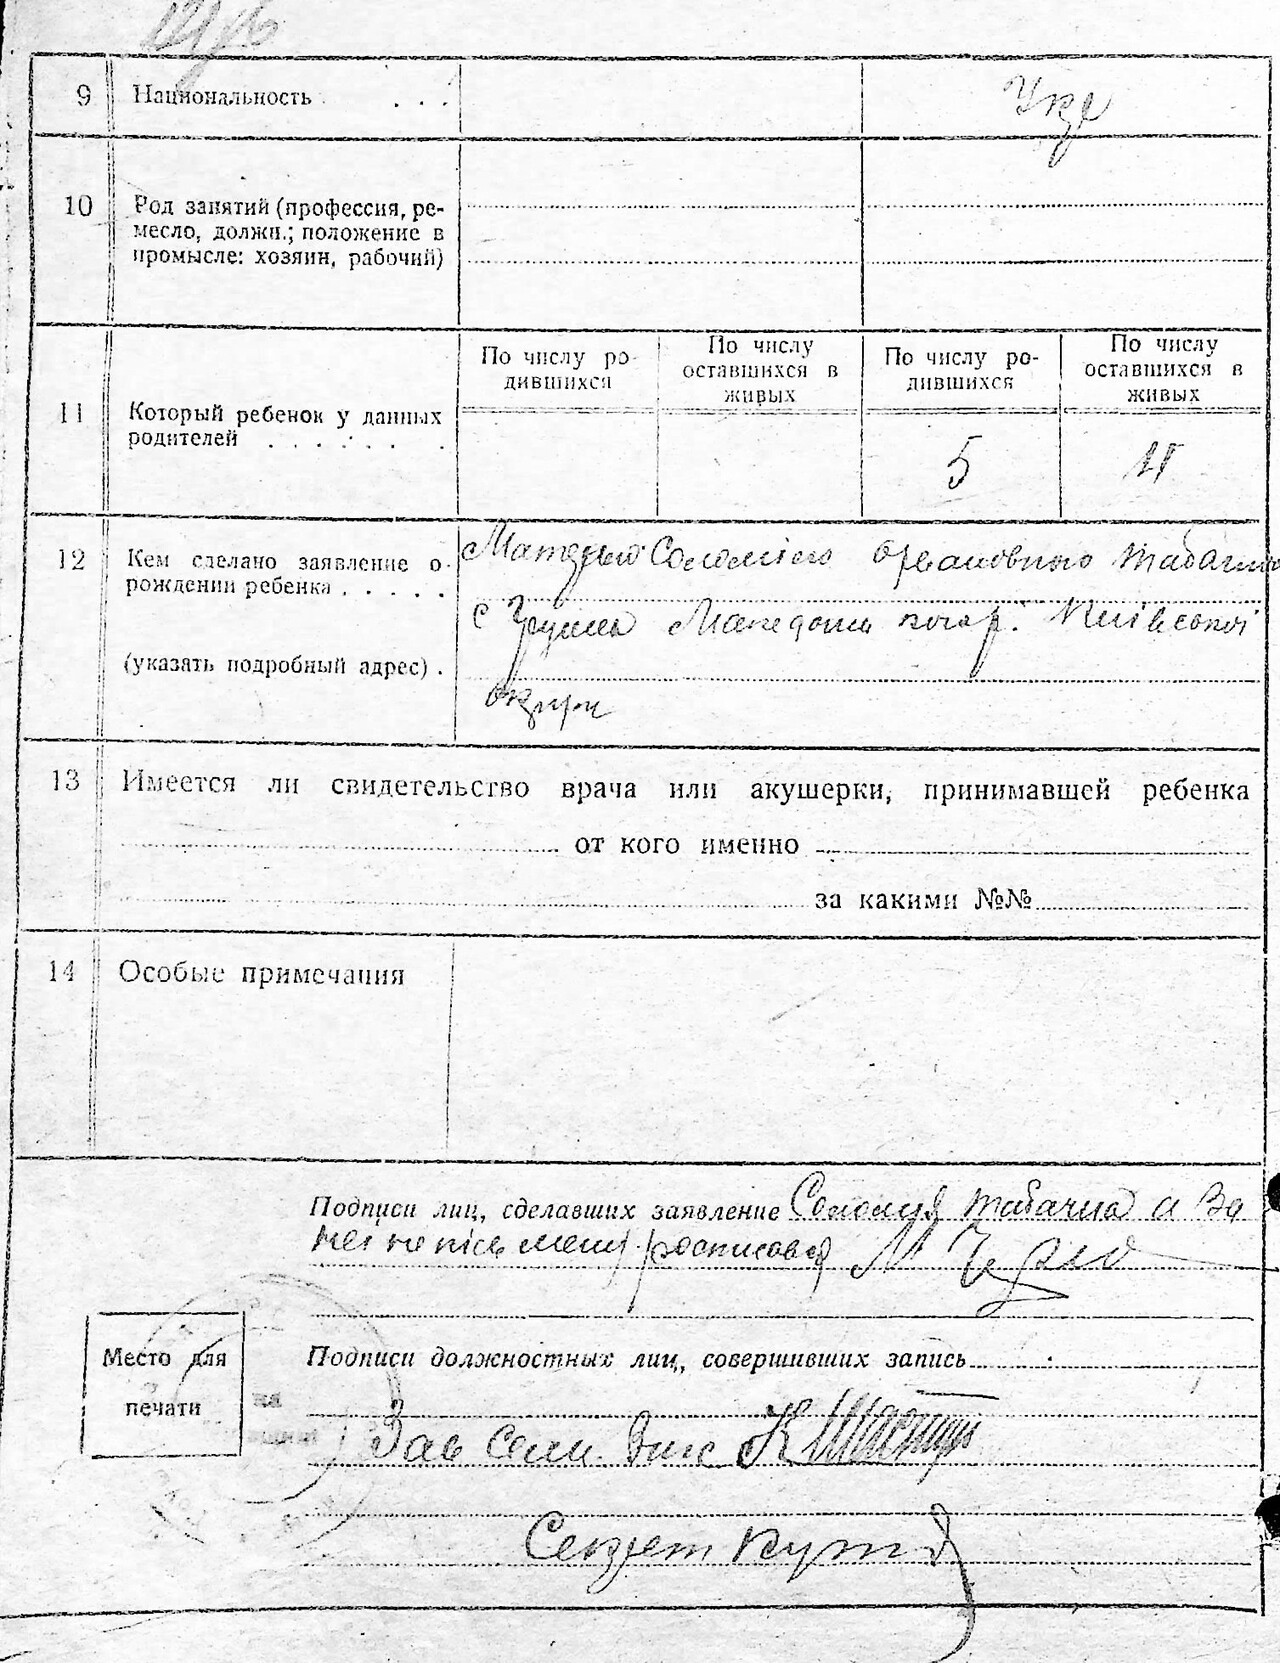 9 Национальность . . . Укр
10 Род занятий (профессия, ре-
месло, должн.; положение в
промысле: хозяин, рабочий)
11 Который ребенок у данных
родителей . . . . . . .
По числу ро-
дившихся
По числу
оставшихся в
живых
По числу ро-
дившихся
По числу
оставшихся в
живых
5 4
12 Кем сделано заявление о
рождении ребенка . . . . .
(указать подробный адрес) .
Матерью Соломією Табачна
с
округи
13 Имеется ли свидетельство врача или акушерки, принимавшей ребенка
от кого именно
за какими №№
14 Особые примечания
Подписи лиц, сделавших заявление Соломія Табачна а За
неї росписався М
Место для
печати
Подписи должностных лиц, совершивших запись
Зав
Секрет